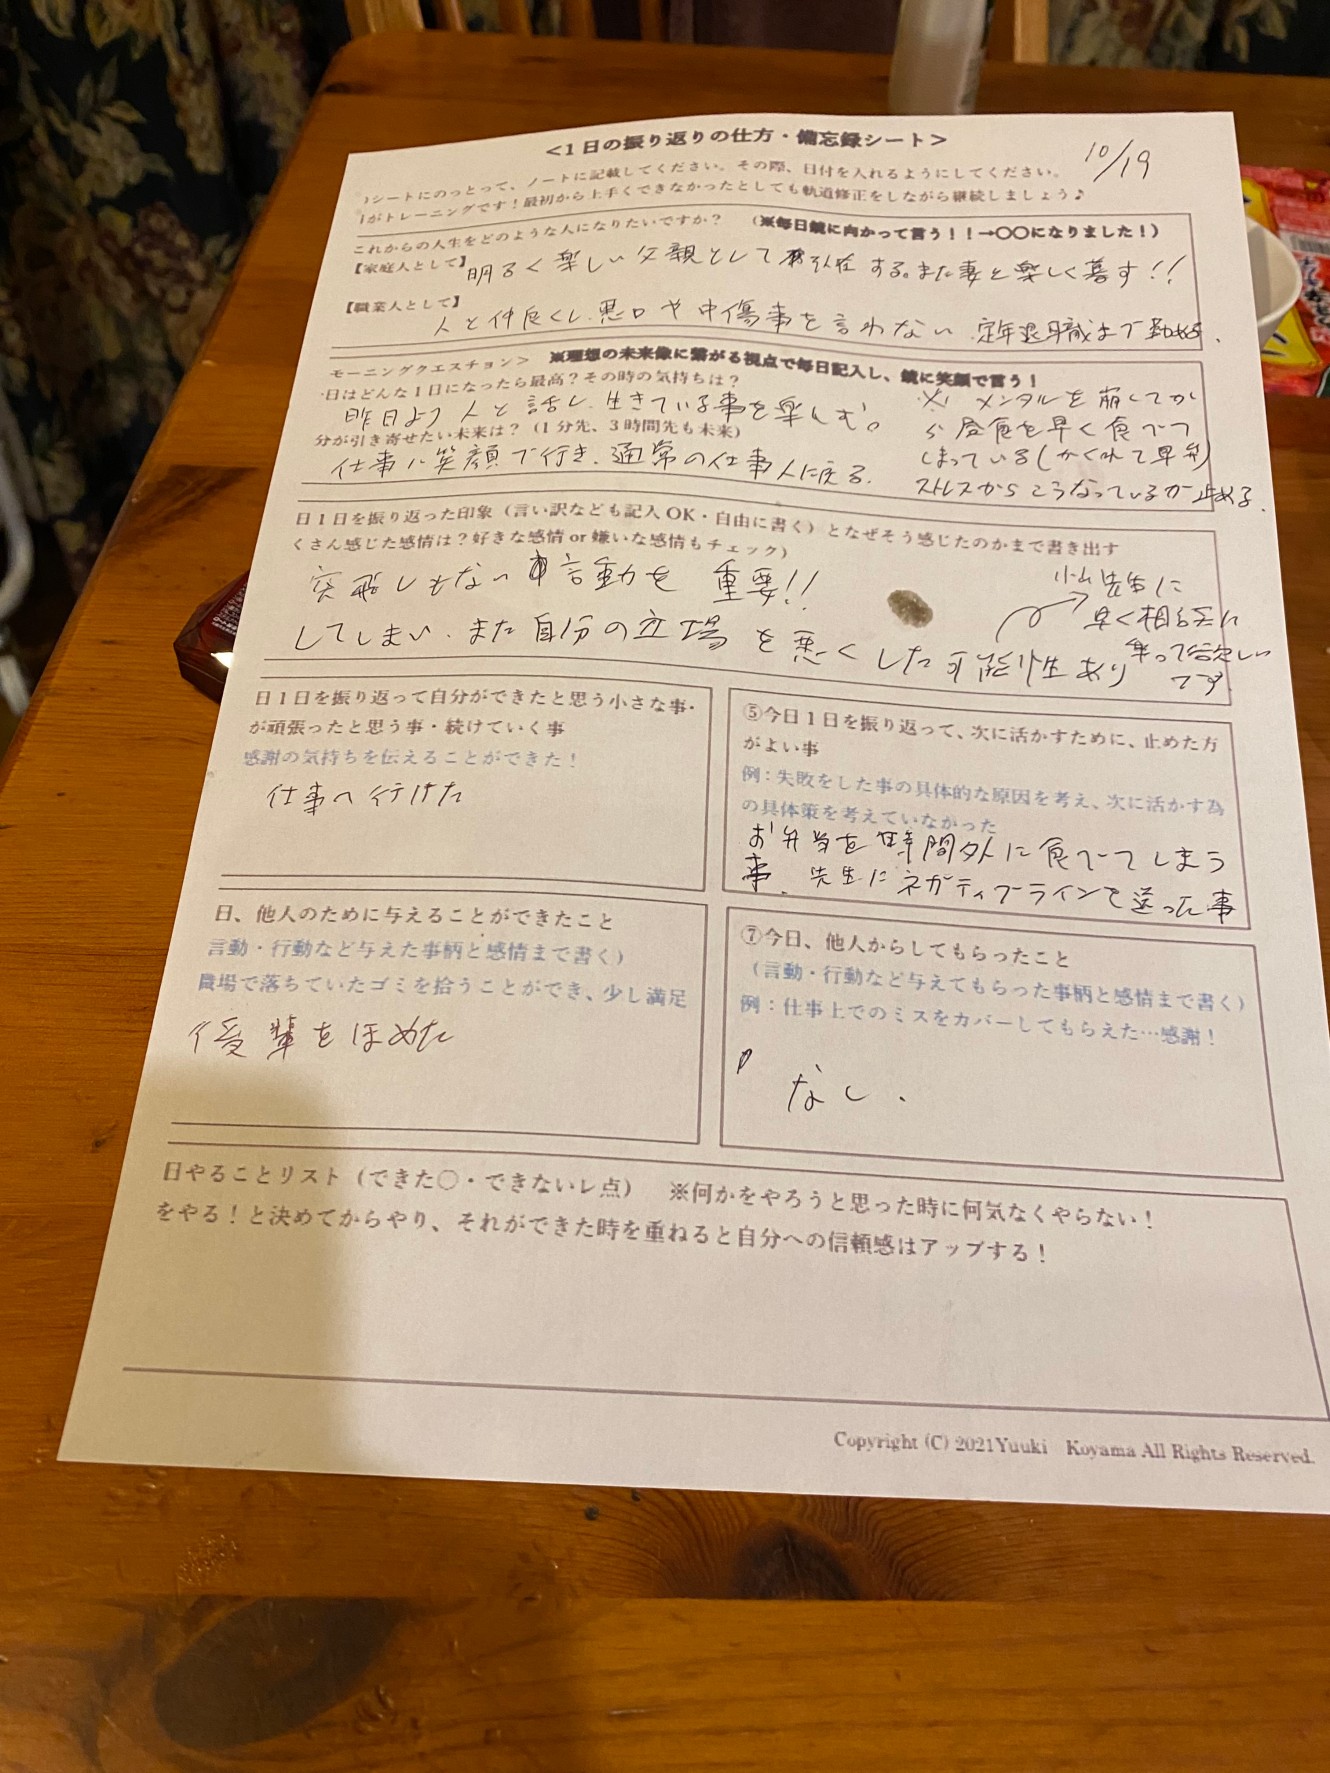 <1日の振り返りの仕方・備忘録シート>
10/19
シートにのっとって、ノートに記載してください。その際、日付を入れるようにしてください。
がトレーニングです!最初から上手くできなかったとしても軌道修正をしながら継続しましょう♪
これからの人生をどのような人になりたいですか? (※毎日鏡に向かって言う!!→〇〇になりました!)
【家庭人として】明るく楽しい父親として 存在する。また妻と楽しく暮す!!
【職業人として】
人と仲良くし、悪口や中傷事を言わない、定年退職まで勤める.
モーニングクエスチョン> ※理想の未来像に繋がる視点で毎日記入し、鏡に笑顔で言う!
日はどんな1日になったら最高?その時の気持ちは?
昨日より人と話し、生きている事を楽しむ。
分が引き寄せたい未来は?(1分先、3時間先も未来)
仕事に笑顔で行き、通常の仕事人に戻る.
※ メンタルを崩してか
ら昼食を早く食べて
しまっている(かくれて早弁)
ストレスからこうなっているが止める.
日1日を振り返った印象(言い訳なども記入OK・自由に書く)となぜそう感じたのかまで書き出す
くさん感じた感情は?好きな感情or嫌いな感情もチェック)
突飛しもない 言動を 重要!!
してしまい、また自分の立場を悪くした可能性あり
小山先生に
早く相談に
乗って欲しい
です
日1日を振り返って自分ができたと思う小さな事・
が頑張ったと思う事・続けていく事
感謝の気持ちを伝えることができた!
仕事へ行けた
⑤今日1日を振り返って、次に活かすために、止めた方
がよい事
例:失敗をした事の具体的な原因を考え、次に活かす為
の具体策を考えていなかった
お弁当を時間外に食べてしまう
事、先生にネガティブラインを送った事
日、他人のために与えることができたこと
言動・行動など与えた事柄と感情まで書く)
職場で落ちていたゴミを拾うことができ、少し満足
後輩をほめた
⑦今日、他人からしてもらったこと
(言動・行動など与えてもらった事柄と感情まで書く)
例:仕事上でのミスをカバーしてもらえた…感謝!
なし.
日やることリスト(できた〇・できないレ点) ※何かをやろうと思った時に何気なくやらない!
をやる!と決めてからやり、それができた時を重ねると自分への信頼感はアップする!
Copyright (C) 2021Yuuki Koyama All Rights Reserved.